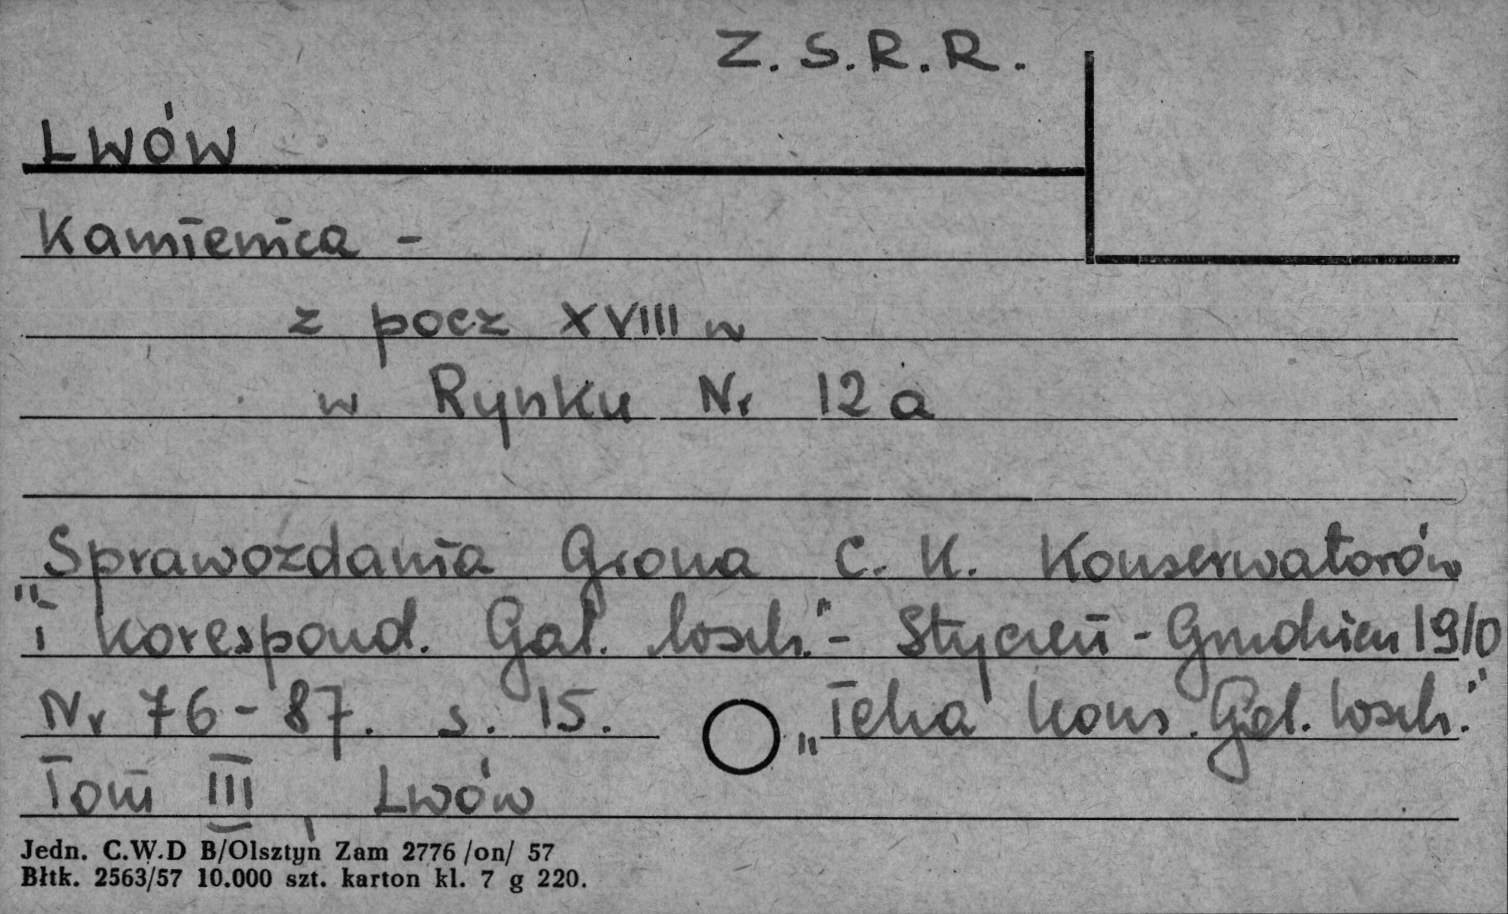 Z. S. R. R.
LWÓW
Kamienica -
z pocz XVIII w
w Rynku Nr 12 a
Sprawozdania Grona C. K. Konserwatorów
"i korespond. Gal. wsch." - Styczeń - Grudzień 1910
Nr 76 - 87. s. 15. „Teka kons. Gal. wsch."
Tom III, Lwów
Jedn. C.W.D B/Olsztyn Zam 2776 /on/ 57
Błtk. 2563/57 10.000 szt. karton kl. 7 g 220.